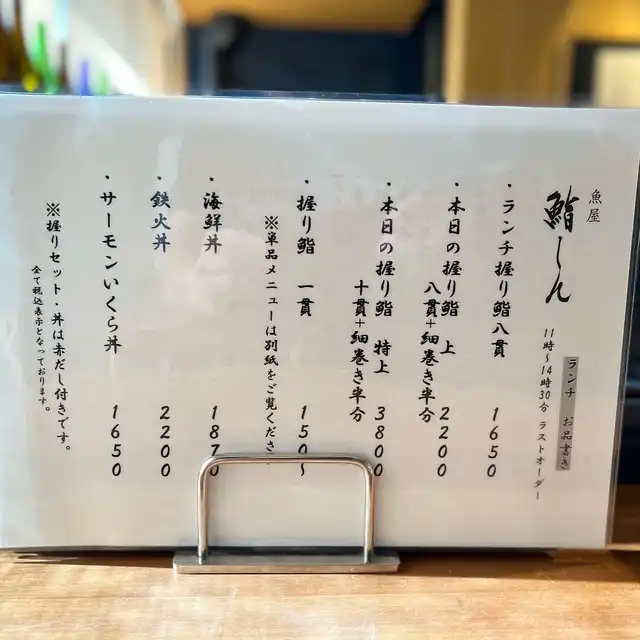 魚屋
鮨しん
ランチ お品書き
11時〜14時30分 ラストオーダー
・ランチ握り鮨八貫 1650
・本日の握り鮨 上
八貫+細巻き半分 2200
・本日の握り鮨 特上
十貫+細巻き半分 3800
・握り鮨 一貫 150〜
※単品メニューは別紙をご覧くださ
・海鮮丼 187
・鉄火丼 2200
・サーモンいくら丼 1650
※握りセット・丼は赤だし付きです。
全て税込表示となっております。